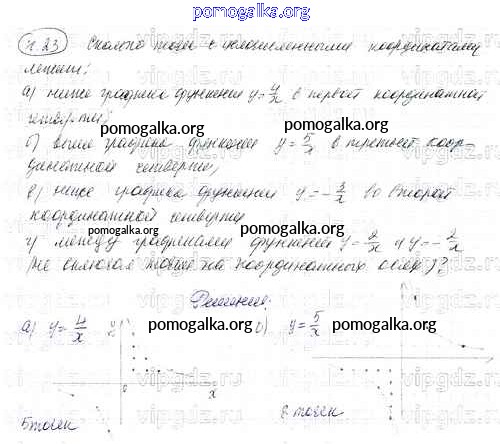 pomogalka.org
н. 23 Сколько точек с целочисленными координатами
лежит:
а) ниже графика функции y = 4/x в первой координатной
четверти;
pomogalka.org pomogalka.org
б) выше графика функции y = 5/x в третьей коор-
динатной четверти;
pomogalka.org
в) ниже графика функции y = -3/x во второй
координатной четверти
pomogalka.org
г) между графиками функций y = 2/x и y = -2/x
(не включая точки на координатных осях)?
pomogalka.org
Решение:
а) y = 4/x y 0 x
pomogalka.org
б) y = 5/x
pomogalka.org
5 точек
8 точек
vipgdz.ru